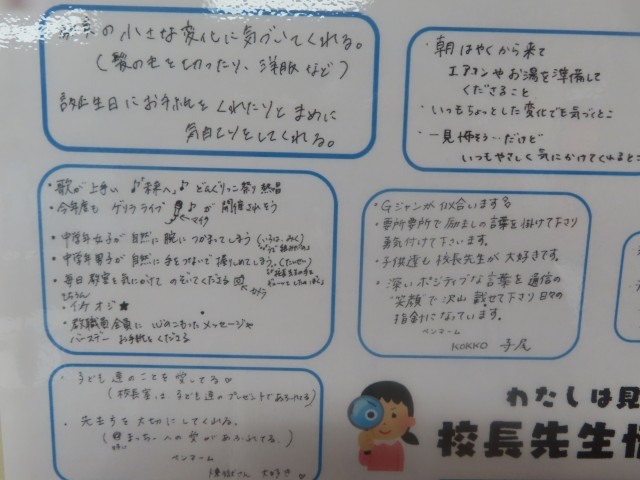 の小さな変化に気づいてくれる。
(髪の毛を切ったり、洋服など)
誕生日にお手紙をくれたりとまめに
気配りをしてくれる。
・朝はやくから来て
エアコンやお湯を準備して
くださること
・いつもちょっとした変化でも気づくとこ
・一見怖そう…だけど
いつもやさしく気にかけてくれるとこ
・歌が上手い ♪「未来へ」♪ どんぐりっこ祭り 熱唱
・今年度も ゲリラライブ が 開催されそう
マイク
・中学年女子が 自然に 腕に つかまってしまう
・中学年男子が 自然に手をつないで
・毎日教室を気にかけて のぞいてくださる
カメラ
・イケオジ★
・教職員全員に 心のこもった メッセージ
バースデー お手紙をくださる
・Gジャンが似合います
・要所要所で励ましの言葉を掛けて下さり
勇気付けて下さいます。
・子供達も 校長先生が 大好きです。
・深いポジティブな言葉を通信の
"笑顔"で沢山 載せて下さり 日々の
指針になっています。
ペンネーム
KOKKO
・子ども達のことを愛してる♡
(校長室は、子ども達のプレゼントであふれてる)
・先生方を大切にしてくれる。
への愛があふれてる。)
ペンネーム
大好き♡
わたしは見
校長先生